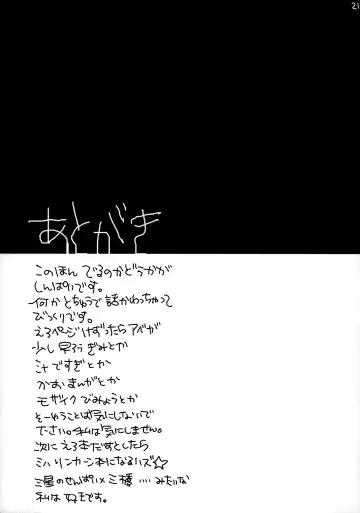 21
あとがき
このほん でるのかどうかが
しんぱいです。
何かとちゅうで話かわっちゃって
びっくりです。
えろページけずったらアベが
少し早ろうぎみとか
ミケですぎとか
かおまんがとか
モザイクびみょうとか
そーゆうことは気にしないで
下さい。私は気にしません。
次にえろ本だすとしたら
ミハリンカーン本になるハズ☆
三星のせんぱい×三橋 ‥‥みたいな
私は 好きです。